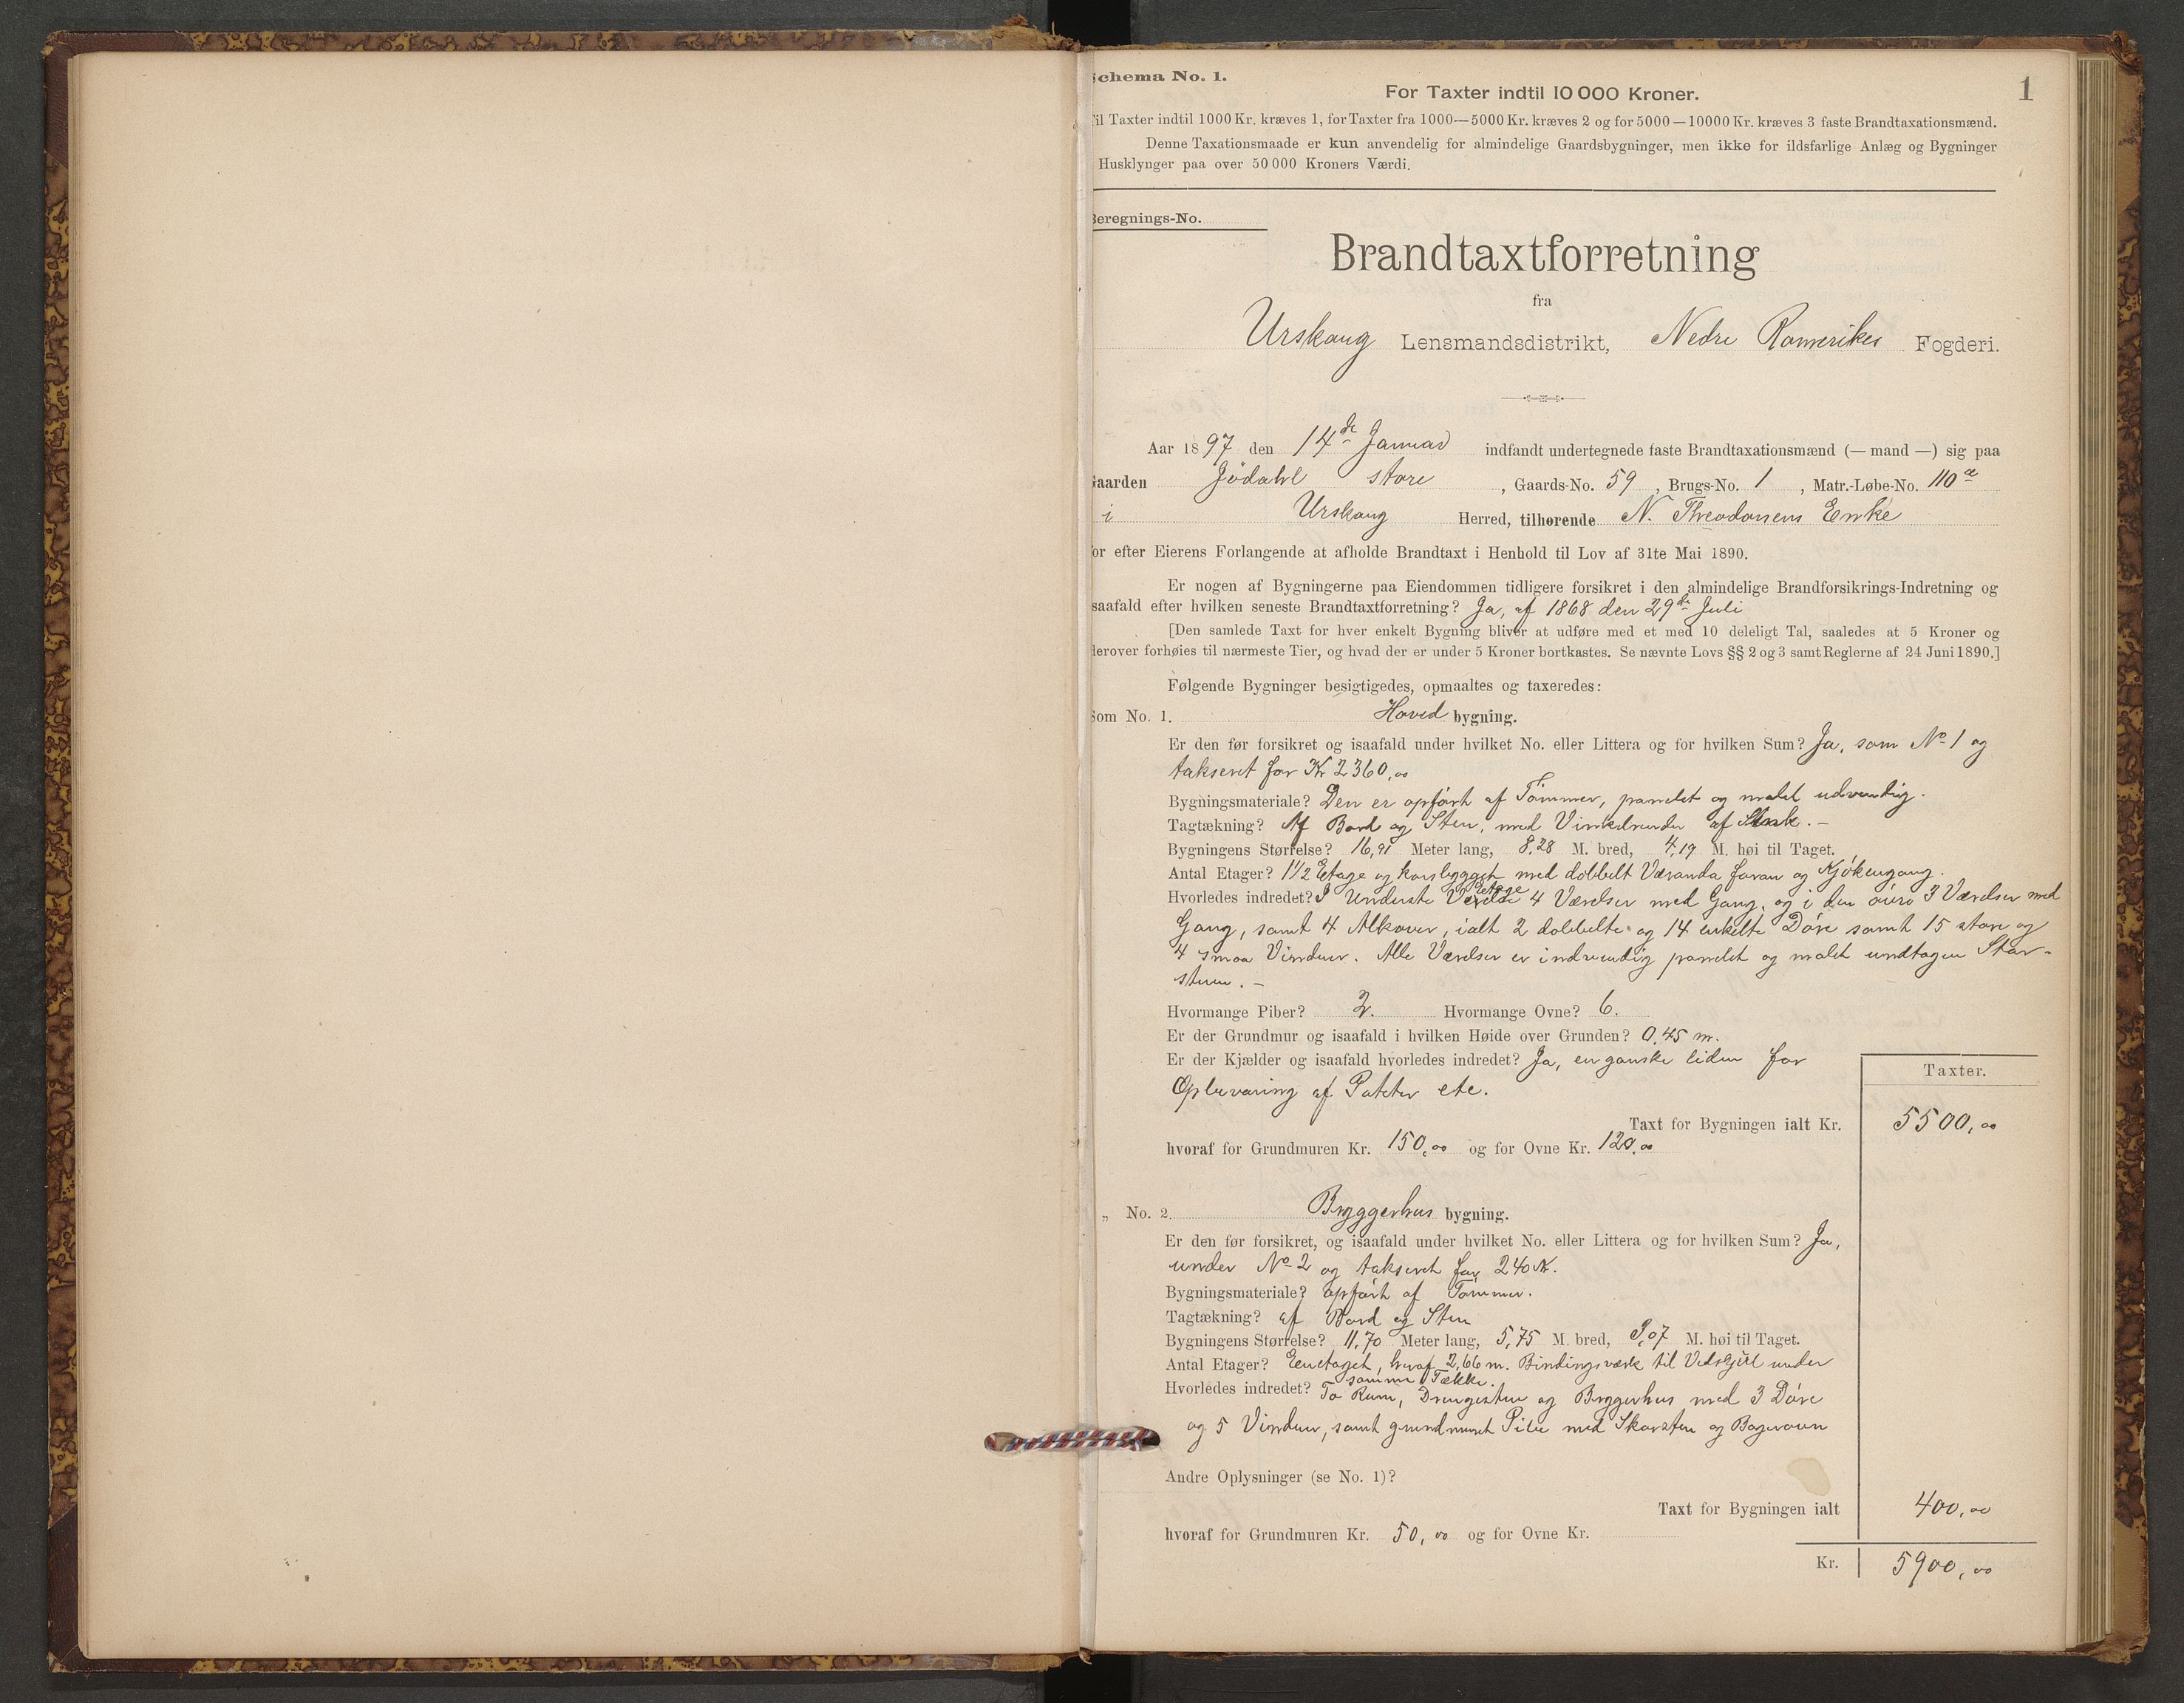 Schema No. 1.
1
For Taxter indtil 10 000 Kroner.
Til Taxter indtil 1000 Kr. kræves 1, for Taxter fra 1000—5000 Kr. kræves 2 og for 5000—10000 Kr. kræves 3 faste Brandtaxationsmænd.
Denne Taxationsmaade er kun anvendelig for almindelige Gaardsbygninger, men ikke for ildsfarlige Anlæg og Bygninger
Husklynger paa over 50 000 Kroners Værdi.
Beregnings-No.
Brandtaxtforretning
fra
Urskoug Lensmandsdistrikt, Nedre Romerikes Fogderi.
Aar 1897 den 14de Januar indfandt undertegnede faste Brandtaxationsmænd (— mand —) sig paa
Gaarden Jödahl store, Gaards-No. 59, Brugs-No. 1, Matr.-Løbe-No. 110a
i Urskoug Herred, tilhørende N. Theodorsens Enke
for efter Eierens Forlangende at afholde Brandtaxt i Henhold til Lov af 31te Mai 1890.
Er nogen af Bygningerne paa Eiendommen tidligere forsikret i den almindelige Brandforsikrings-Indretning og
isaafald efter hvilken seneste Brandtaxtforretning? Ja, af 1868 den 29de Juli
[Den samlede Taxt for hver enkelt Bygning bliver at udføre med et med 10 deleligt Tal, saaledes at 5 Kroner og
derover forhøies til nærmeste Tier, og hvad der er under 5 Kroner bortkastes. Se nævnte Lovs §§ 2 og 3 samt Reglerne af 24 Juni 1890.]
Følgende Bygninger besigtigedes, opmaaltes og taxeredes:
Som No. 1. Hoved bygning.
Er den før forsikret og isaafald under hvilket No. eller Littera og for hvilken Sum? Ja, som No 1 og
takseret for Kr 2360,00
Bygningsmateriale? Den er opført af Tømmer, panelet og malet udvendig.
Tagtækning? Af Bord og Sten, med af
Bygningens Størrelse? 16,91 Meter lang, 8,28 M. bred, 4,19 M. høi til Taget.
Antal Etager? 1½ Etage og korsbygget med dobbelt Veranda foran og Kjøkengang.
Hvorledes indredet? I Underste Etage 4 Værelser med Gang, og i den øvre 3 Værelser med
Gang, samt 4 Alkover, ialt 2 dobbelte og 14 enkelte Døre samt 15 store og
4 smaa Vinduer. Alle Værelser er indvendig panelet og malet undtagen Stor-
stuen. –
Hvormange Piber? 2. Hvormange Ovne? 6.
Er der Grundmur og isaafald i hvilken Høide over Grunden? 0,45 m.
Er der Kjælder og isaafald hvorledes indredet? Ja, en ganske liden for
Opbevaring af Poteter etc.
Taxter.
Taxt for Bygningen ialt Kr. 5500,00
hvoraf for Grundmuren Kr. 150,00 og for Ovne Kr. 120,00
„ No. 2. Bryggerhus bygning.
Er den før forsikret, og isaafald under hvilket No. eller Littera og for hvilken Sum? Ja,
under No 2 og takseret for 240 Kr.
Bygningsmateriale? opført af Tømmer.
Tagtækning? af Bord og Sten
Bygningens Størrelse? 11,70 Meter lang, 5,75 M. bred, 3,07 M. høi til Taget.
Antal Etager? Eenetaget, hvoraf 2,66 m. Bindingsværk til Vedskjul under
samme Tække.
Hvorledes indredet? To Rum, Drengestue og Bryggerhus med 3 Døre
og 5 Vinduer, samt grundmuret Pibe med Skorsten og Bagerovn
Andre Oplysninger (se No. 1)?
Taxt for Bygningen ialt 400,00
hvoraf for Grundmuren Kr. 50,00 og for Ovne Kr.
Kr. 5900,00